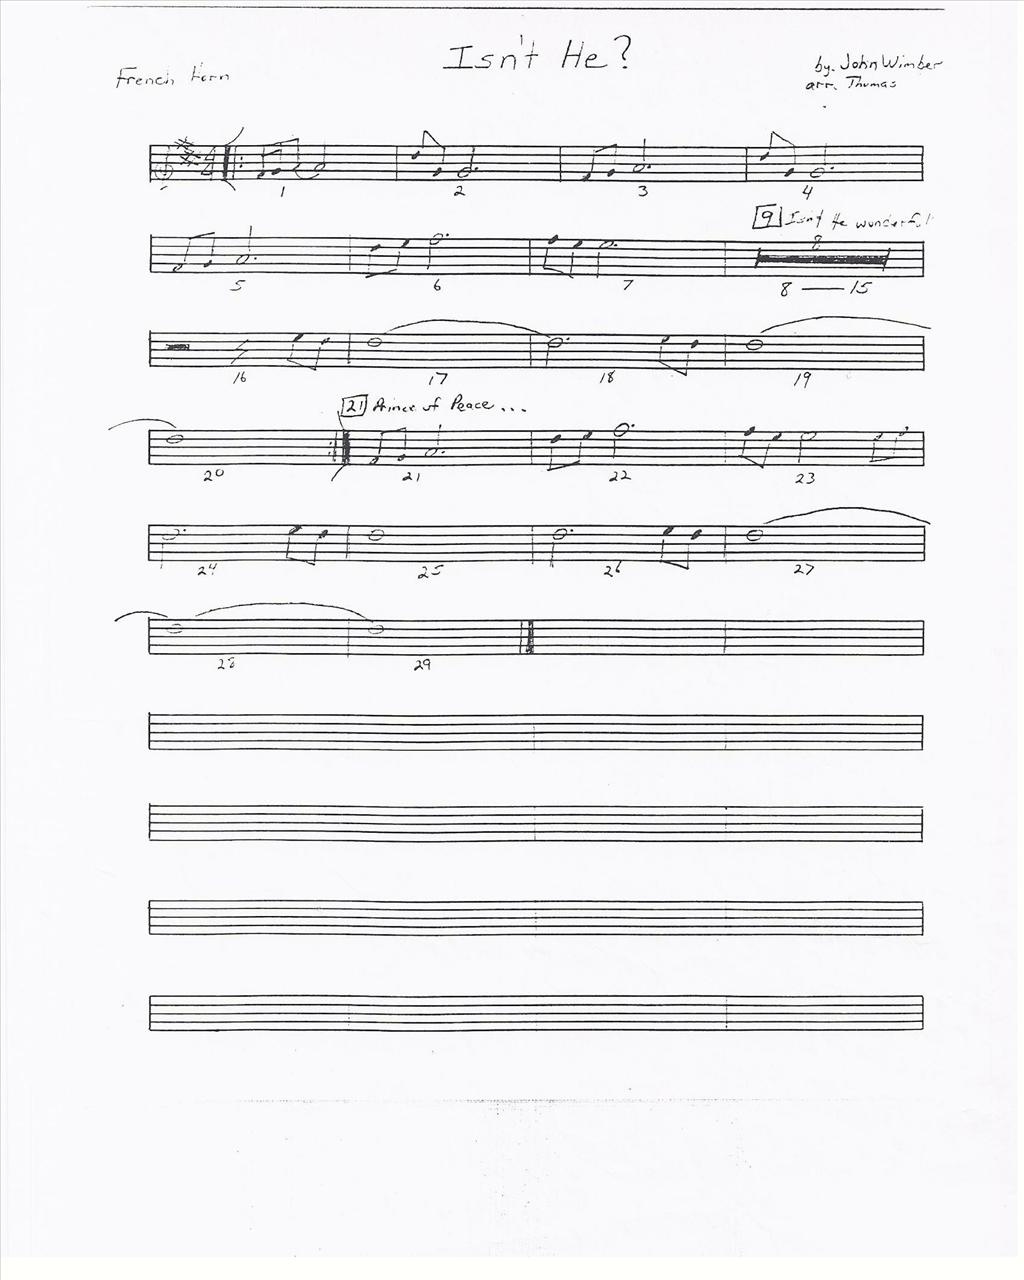 Isn't He?
French Horn
by. John Wimber
arr. Thomas
4
4
1 2 3 4
9 Isn't He wonderful
8
5 6 7 8 — 15
16 17 18 19
21 Prince of Peace...
20 21 22 23
24 25 26 27
28 29